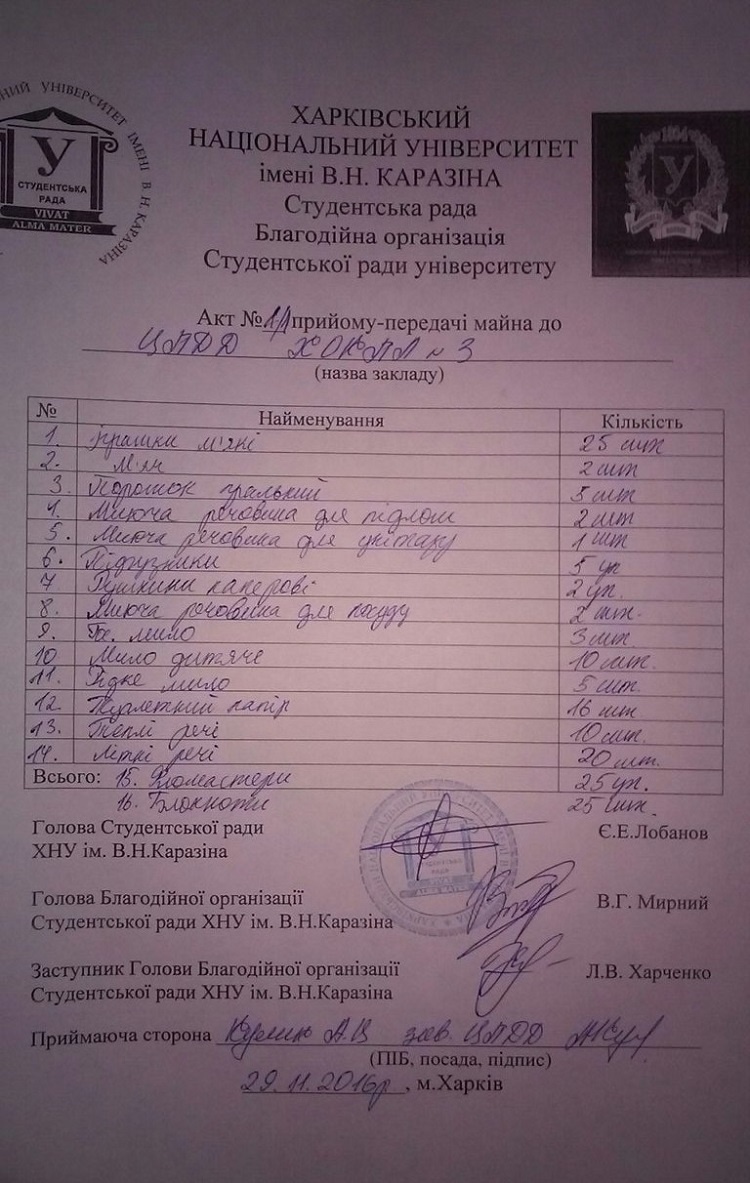 НИЙ УНІВЕРСИТЕТ ІМЕНІ В.Н. КАРАЗІНА
У
СТУДЕНТСЬКА
РАДА
VIVAT
ALMA MATER
ХАРКІВСЬКИЙ
НАЦІОНАЛЬНИЙ УНІВЕРСИТЕТ
імені В.Н. КАРАЗІНА
Студентська рада
Благодійна організація
Студентської ради університету
У
Акт № прийому-передачі майна до
ЦПДД ХОКПЛ №3
(назва закладу)
№ Найменування Кількість
1. Іграшки м'які 25 шт
2. М'яч 2 шт
3. Порошок пральний 5 шт
4. Миюча речовина для підлоги 2 шт
5. Миюча речовина для унітазу 1 шт
6. Підгузники 5 уп
7 паперові 2 уп.
8. Миюча речовина для посуду 2 шт.
9. мило 3 шт.
10 Мило дитяче 10 шт.
11. Рідке мило 5 шт.
12. Туалетний папір 16 шт
13. Теплі речі 10 шт.
14. Літні речі 20 шт.
Всього: 15. Фломастери 25 уп.
16. Блокноти 25 шт.
Голова Студентської ради
ХНУ ім. В.Н.Каразіна Є.Е.Лобанов
Голова Благодійної організації
Студентської ради ХНУ ім. В.Н.Каразіна В.Г. Мирний
Заступник Голови Благодійної організації
Студентської ради ХНУ ім. В.Н.Каразіна Л.В. Харченко
Приймаюча сторона А.В зав. ЦПДД
(ПІБ, посада, підпис)
29.11.2016р, м.Харків